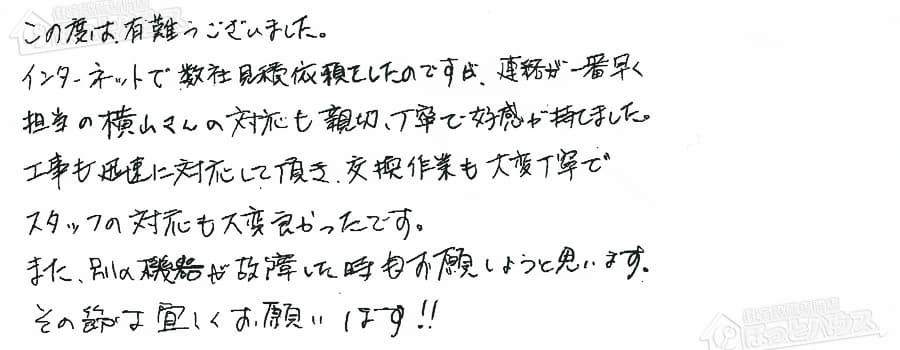 この度は、有難うございました。
インターネットで数社見積依頼をしたのですが、連絡が一番早く
担当の横山さんの対応も親切、丁寧で好感が持てました。
工事も迅速に対応して頂き、交換作業も大変丁寧で
スタッフの対応も大変良かったです。
また、別の機器が故障した時もお願いしようと思います。
その節は宜しくお願いします!!
ほっとハウス